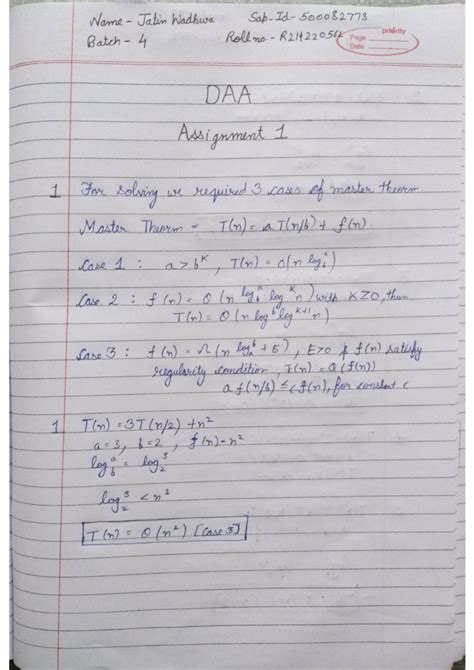 Name - Jatin Wadhwa Sap-Id - 500082778
Batch - 4 Roll no - R214220562
priority
Page
Date
DAA
Assignment 1
1 For solving we required 3 cases of master theorm
Master Theorm - T(n) = a T(n/b) + f(n)
Case 1 : a > b^K, T(n) = O(n log_b^a)
Case 2 : f(n) = O(n log_b^a log^K n) with K≥0, then
T(n) = O(n log_b^b log^{K+1} n)
Case 3 : f(n) = Ω(n log_b^a + ε), E>0 & f(n) satisfy
regularity condition, T(n) = O(f(n))
a f(n/b) ≤ c f(n), for constant c
1 T(n) = 3T(n/2) + n²
a = 3, b = 2, f(n) - n²
log_b^a = log_2^3
log_2^3 < n²
T(n) = O(n²) [Case 3]